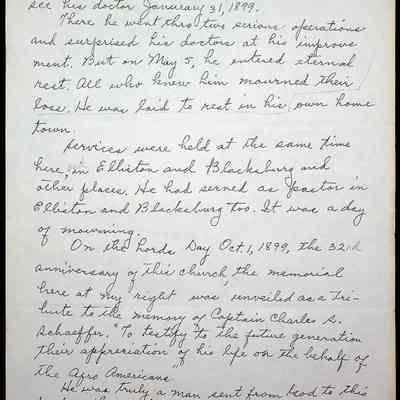 see his doctor January 31, 1899.
There he went thro two serious operations
and surprised his doctors at his improve
ment. But on May 5, he entered eternal
rest. All who knew him mourned their
loss. He was laid to rest in his own home
town.
Services were held at the same time
here, in Elliston and Blacksburg and
other places. He had served as pastor in
Elliston and Blacksburg too. It was a day
of mourning.
On the Lords Day Oct. 1, 1899, the 32nd
anniversary of this church, the memorial
here at my right was unveiled as a Tri-
bute to the memory of Captain Charles S.
Schaeffer, "To testify to the future generation
their appreciation of his life on the behalf of
the Afro Americans"
He was truly a man sent from God to this